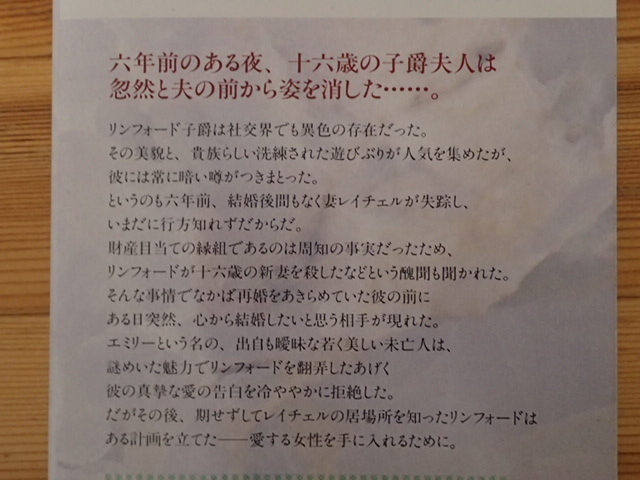 六年前のある夜、十六歳の子爵夫人は
忽然と夫の前から姿を消した……。
リンフォード子爵は社交界でも異色の存在だった。
その美貌と、貴族らしい洗練された遊びぶりが人気を集めたが、
彼には常に暗い噂がつきまとった。
というのも六年前、結婚後間もなく妻レイチェルが失踪し、
いまだに行方知れずだからだ。
財産目当ての縁組であるのは周知の事実だったため、
リンフォードが十六歳の新妻を殺したなどという醜聞も聞かれた。
そんな事情でなかば再婚をあきらめていた彼の前に
ある日突然、心から結婚したいと思う相手が現れた。
エミリーという名の、出自も曖昧な若く美しい未亡人は、
謎めいた魅力でリンフォードを翻弄したあげく
彼の真摯な愛の告白を冷ややかに拒絶した。
だがその後、期せずしてレイチェルの居場所を知ったリンフォードは
ある計画を立てた――愛する女性を手に入れるために。